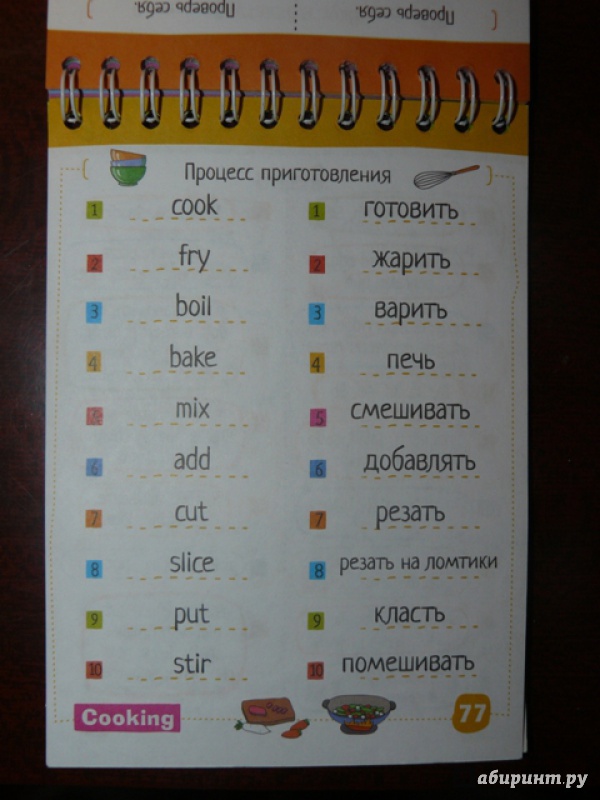 Проверь себя. Проверь себя.
Процесс приготовления
1 cook 1 готовить
2 fry 2 жарить
3 boil 3 варить
4 bake 4 печь
5 mix 5 смешивать
6 add 6 добавлять
7 cut 7 резать
8 slice 8 резать на ломтики
9 put 9 класть
10 stir 10 помешивать
Cooking 77
абиринт.ру